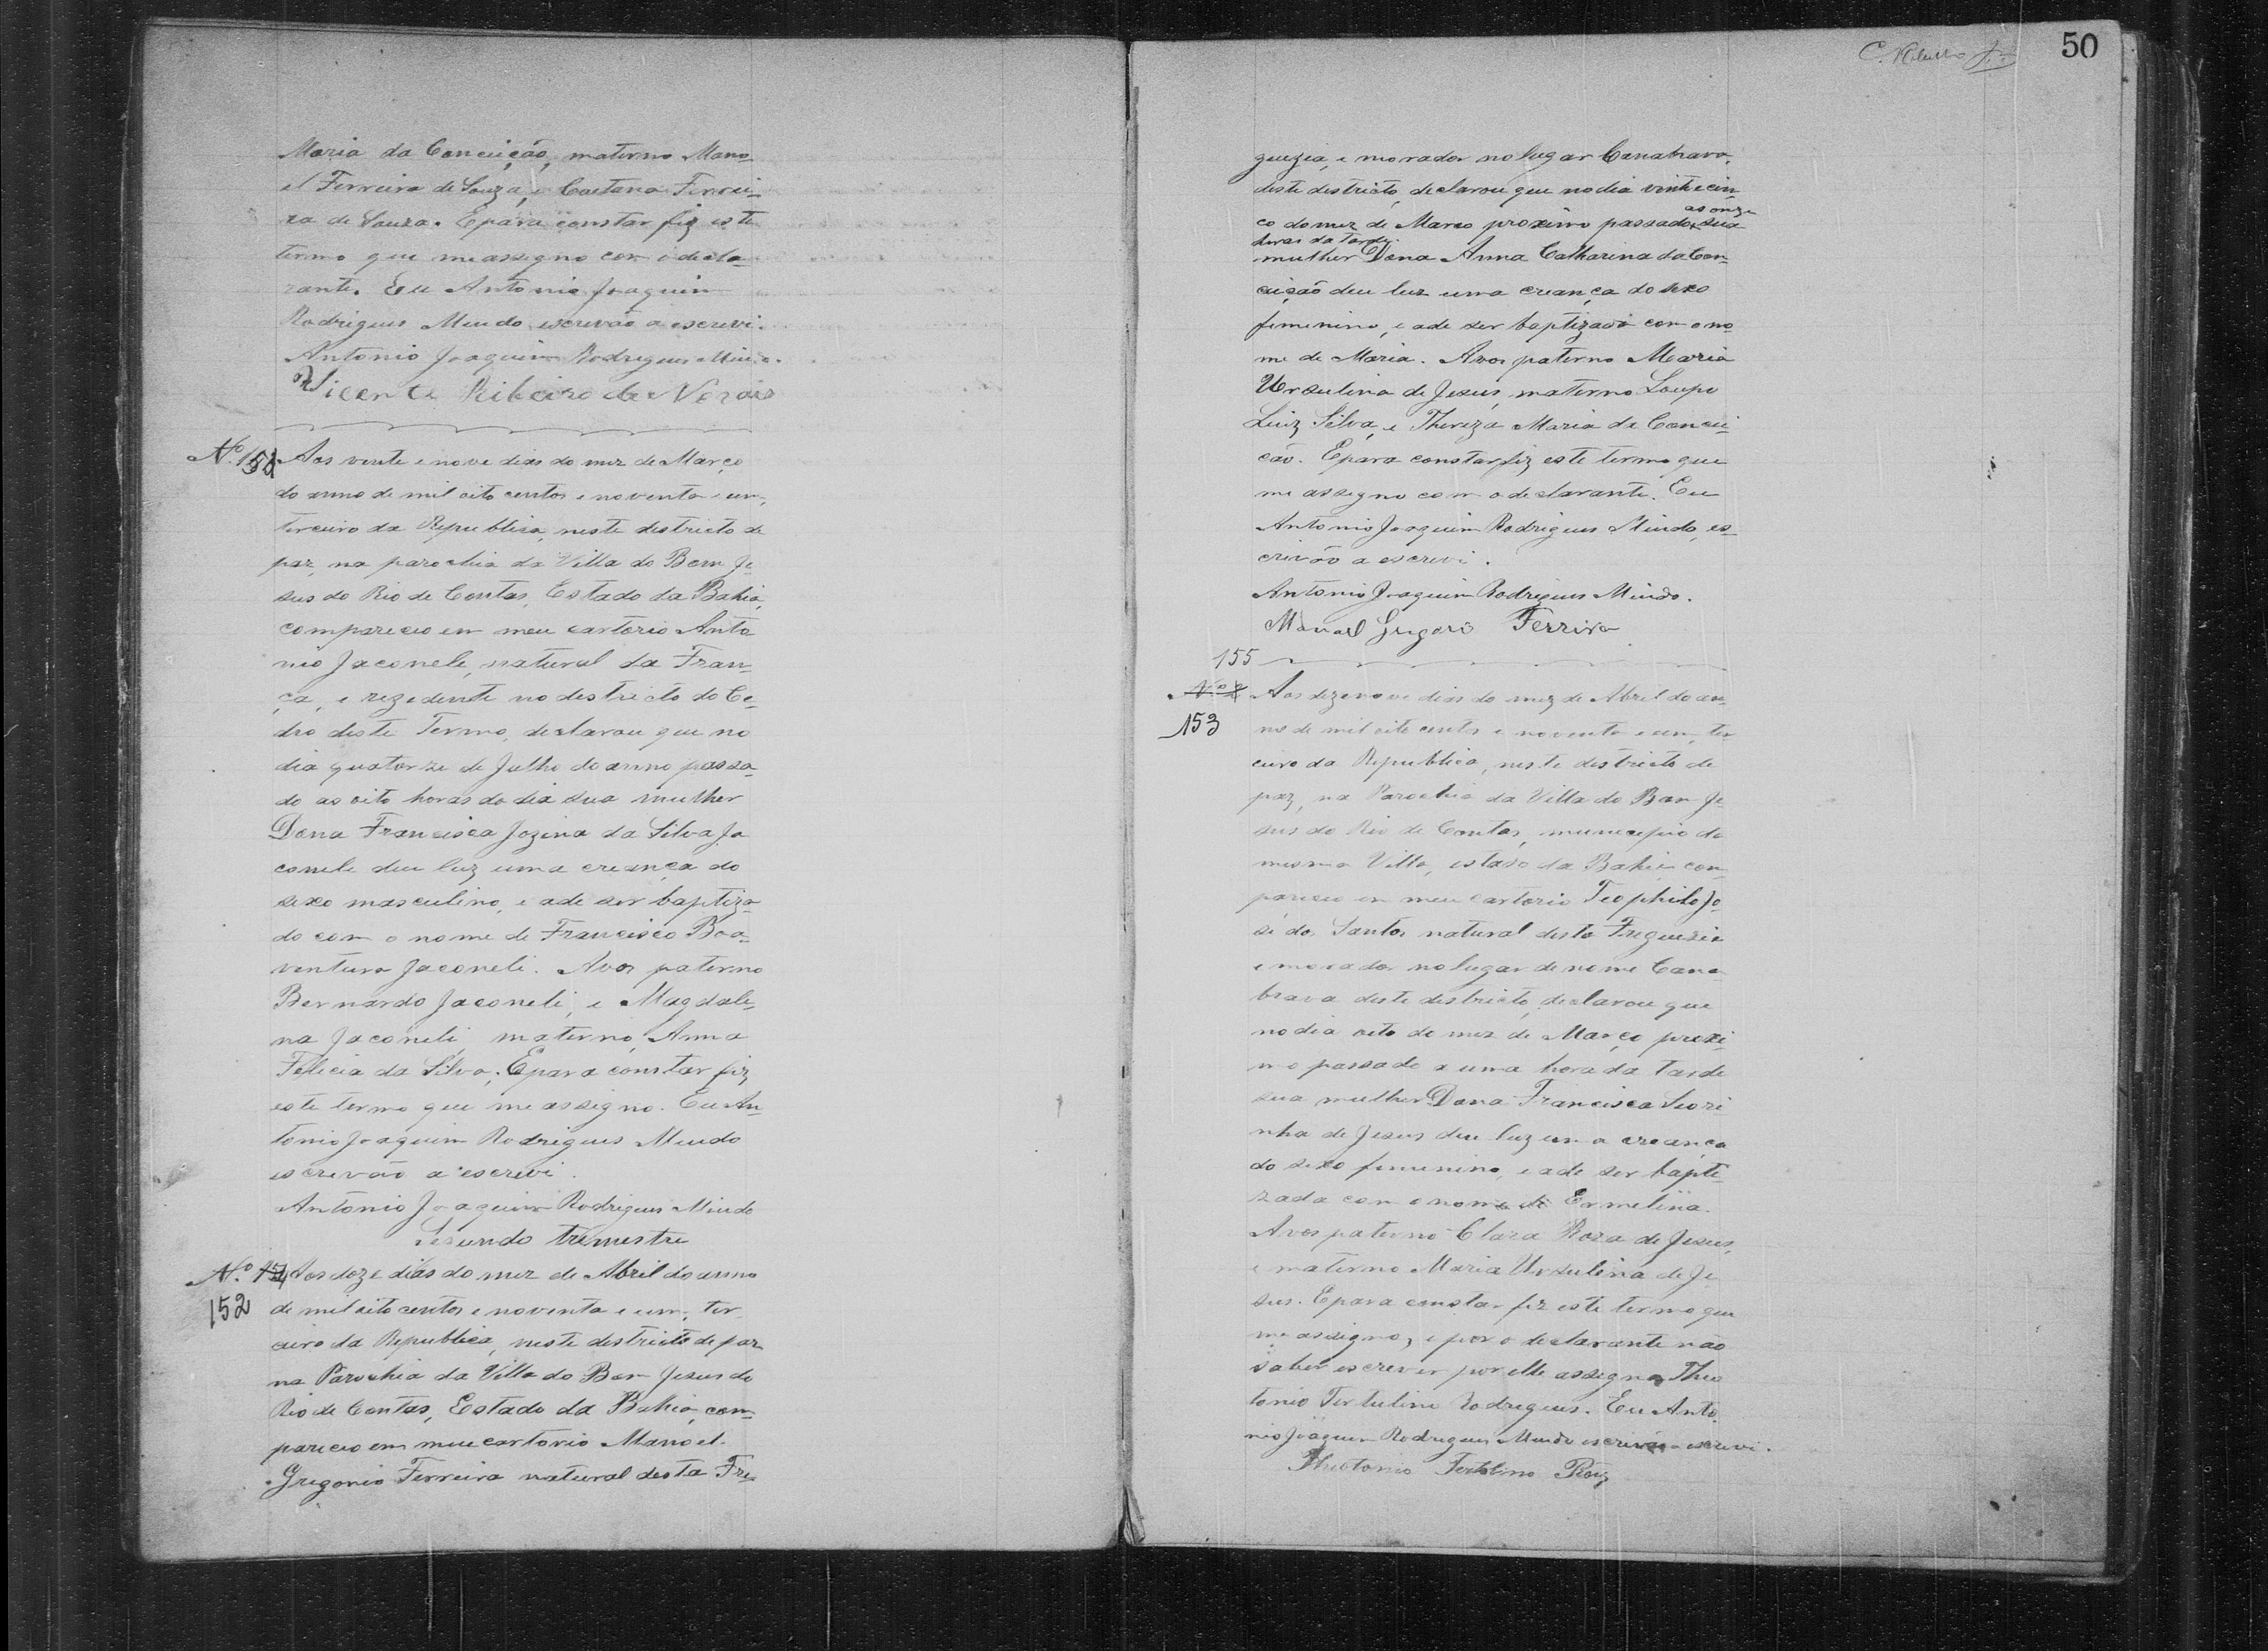 Maria da Conceição, materno Mano-
el Ferreira de Souza, e Caetana Ferrei-
ra de Souza. E para constar fiz este
termo que me assegno com o decla-
rante. Eu Antonio Joaquim
Rodrigues Mindo escrevão a escrevi.
Antonio Joaquim Rodrigues Mindo.
Vicente Ribeiro de Novais
Nº 151
Aos vente e nove dias do mez de Março
do anno de mil oito centos e noventa e um,
terceiro da Republica, neste destricto de
paz, na parochia da Villa do Bom Je-
sus do Rio de Contas, Estado da Bahia,
compareceo em meu cartorio Anto-
nio Jaconele, natural da Fran-
ça, e rezedente no destricto do Ce-
dro deste Termo, declarou que no
dia quatorze de Julho do anno passa-
do as oito horas do dia sua mulher
Dona Francisca Jozina da Silva Ja-
conele deu luz uma creança do
sexo masculino, e ade ser baptiza-
do com o nome de Francisco Boa-
ventura Jaconeli. Avos paterno
Bernardo Jaconeli, e Magdale-
na Jaconeli, materno, Anna
Felicia da Silva. E para constar fiz
este termo que me assegno. Eu An-
tonio Joaquim Rodrigues Mindo
escrevão a escrevi.
Antonio Joaquim Rodrigues Mindo
Segundo trimestre
Nº 154
152
Aos doze dias do mez de Abril do anno
de mil oito centos e noventa e um, ter-
ceiro da Republica, neste destricto de paz
na Parochia da Villa do Bom Jesus do
Rio de Contas, Estado da Bahia, com-
pareceo em meu cartorio Manoel
Gregorio Ferreira natural desta Fre-
50
guezia, e morador no lugar Canabrava,
deste destricto, declarou que no dia vinte e cin-
co do mez de Março proximo passado, as onze
horas da tarde sua
mulher Dona Anna Catharina da Con-
ceição deu luz uma creança do sexo
femenino, e ade ser baptizada com o no-
me de Maria. Avos paterno Maria
Ursulina de Jesus, materno Loupo
Luiz Silva, e Thereza Maria de Concei-
ção. E para constar fiz este termo que
me assegno com o declarante. Eu
Antonio Joaquim Rodrigues Mindo, es-
crivão a escrevi.
Antonio Joaquim Rodrigues Mindo.
Manoel Gregorio Ferrira
155
Nº
153
Aos dezenove dias do mez de Abril do an-
no de mil oito centos e noventa e um, ter-
ceiro da Republica, neste destricto de
paz, na Parochia da Villa do Bom Je-
sus do Rio de Contas, municepio da
mesma Villa, estado da Bahia com-
pareceo em meu cartorio Teophilo Jo-
sé dos Santos natural desta Freguezia
e morador no lugar de nome Cana-
brava deste destricto, declarou que
no dia oito do mez de Março proxi-
mo passado a uma hora da tarde
sua mulher Dona Francisca Seori-
nha de Jesus deu luz uma creança
do sexo femenino, e ade ser bapti-
zada com o nome de Ermelina.
Avos paterno Clara Roza de Jesus,
e materno Maria Ursulina de Je-
sus. E para constar fiz este termo que
me assegno, e por o declarante não
saber escrever por elle assegna Theo-
tonio Tertulino Rodregues. Eu Anto-
nio Joaquim Rodrigues Mindo escrivão a escrevi.
Theotonio Tertolino Roiz